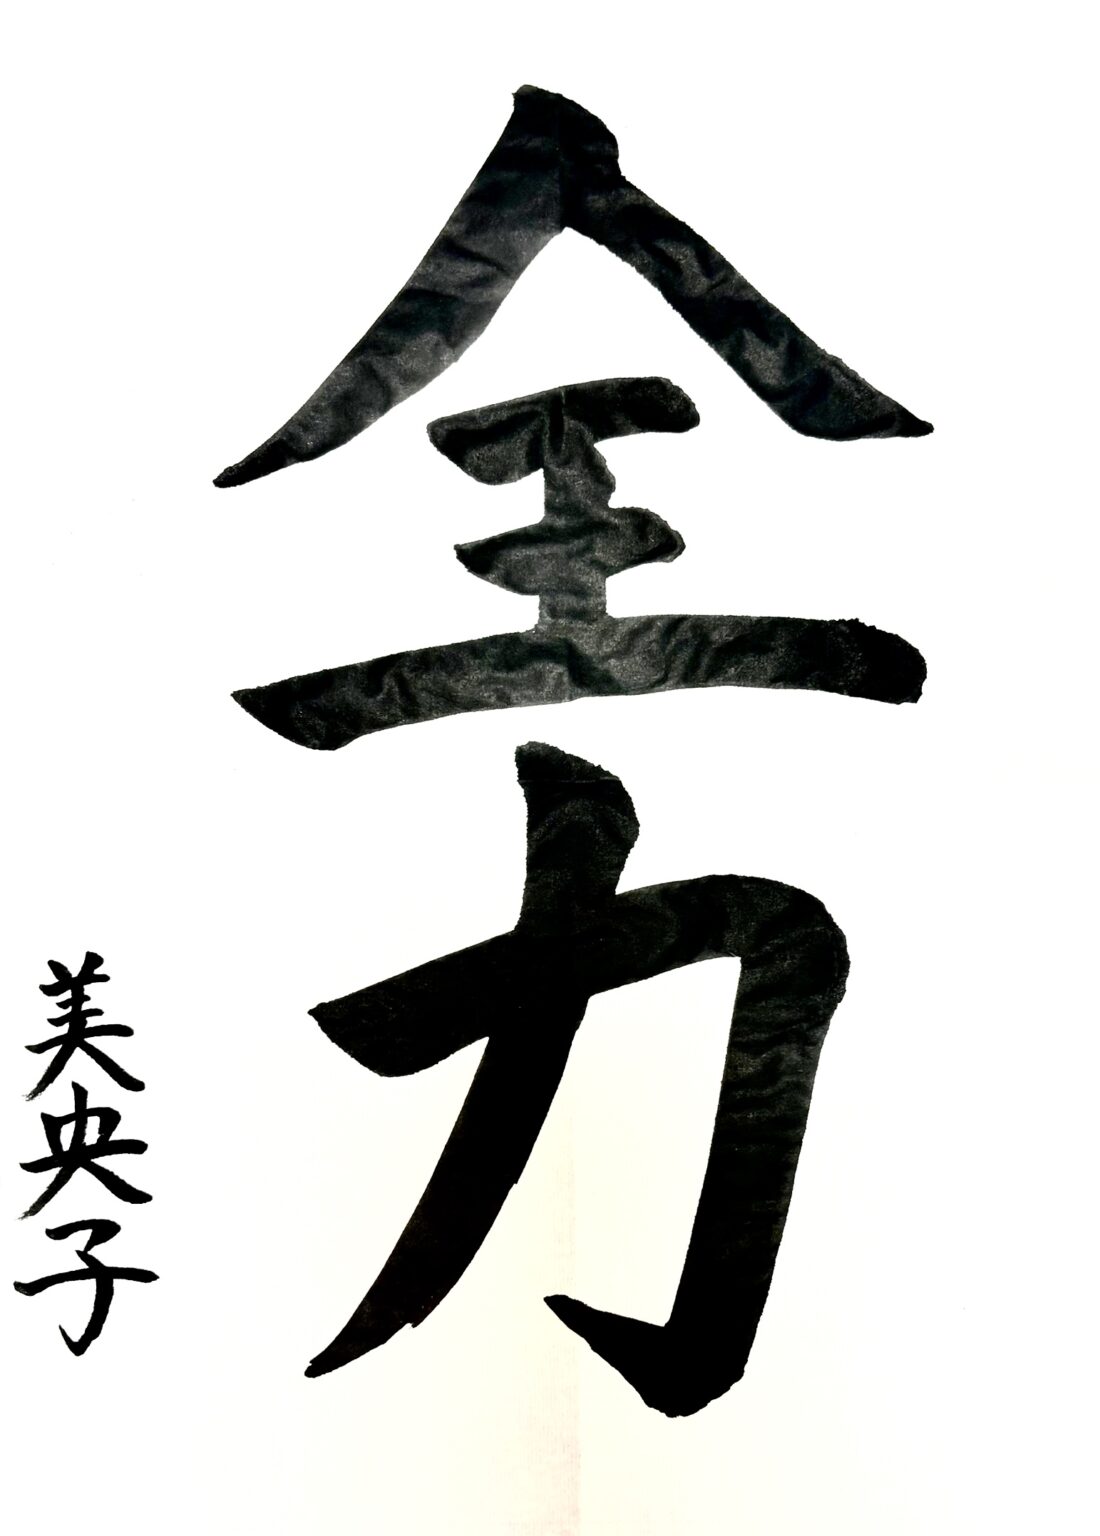 全力
美央子